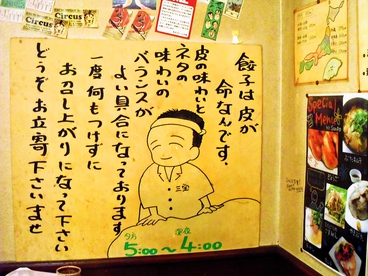 餃子は皮が
命なんです。
皮の味わいと
ネタの
味わいの
バランスが
よい具合になっております
一度何もつけずに
お召し上がりになって下さい
どうぞお立寄下さいませ
三宝
夕方 深夜
5:00〜4:00
Circus
Circus
Circus
Special
Menu